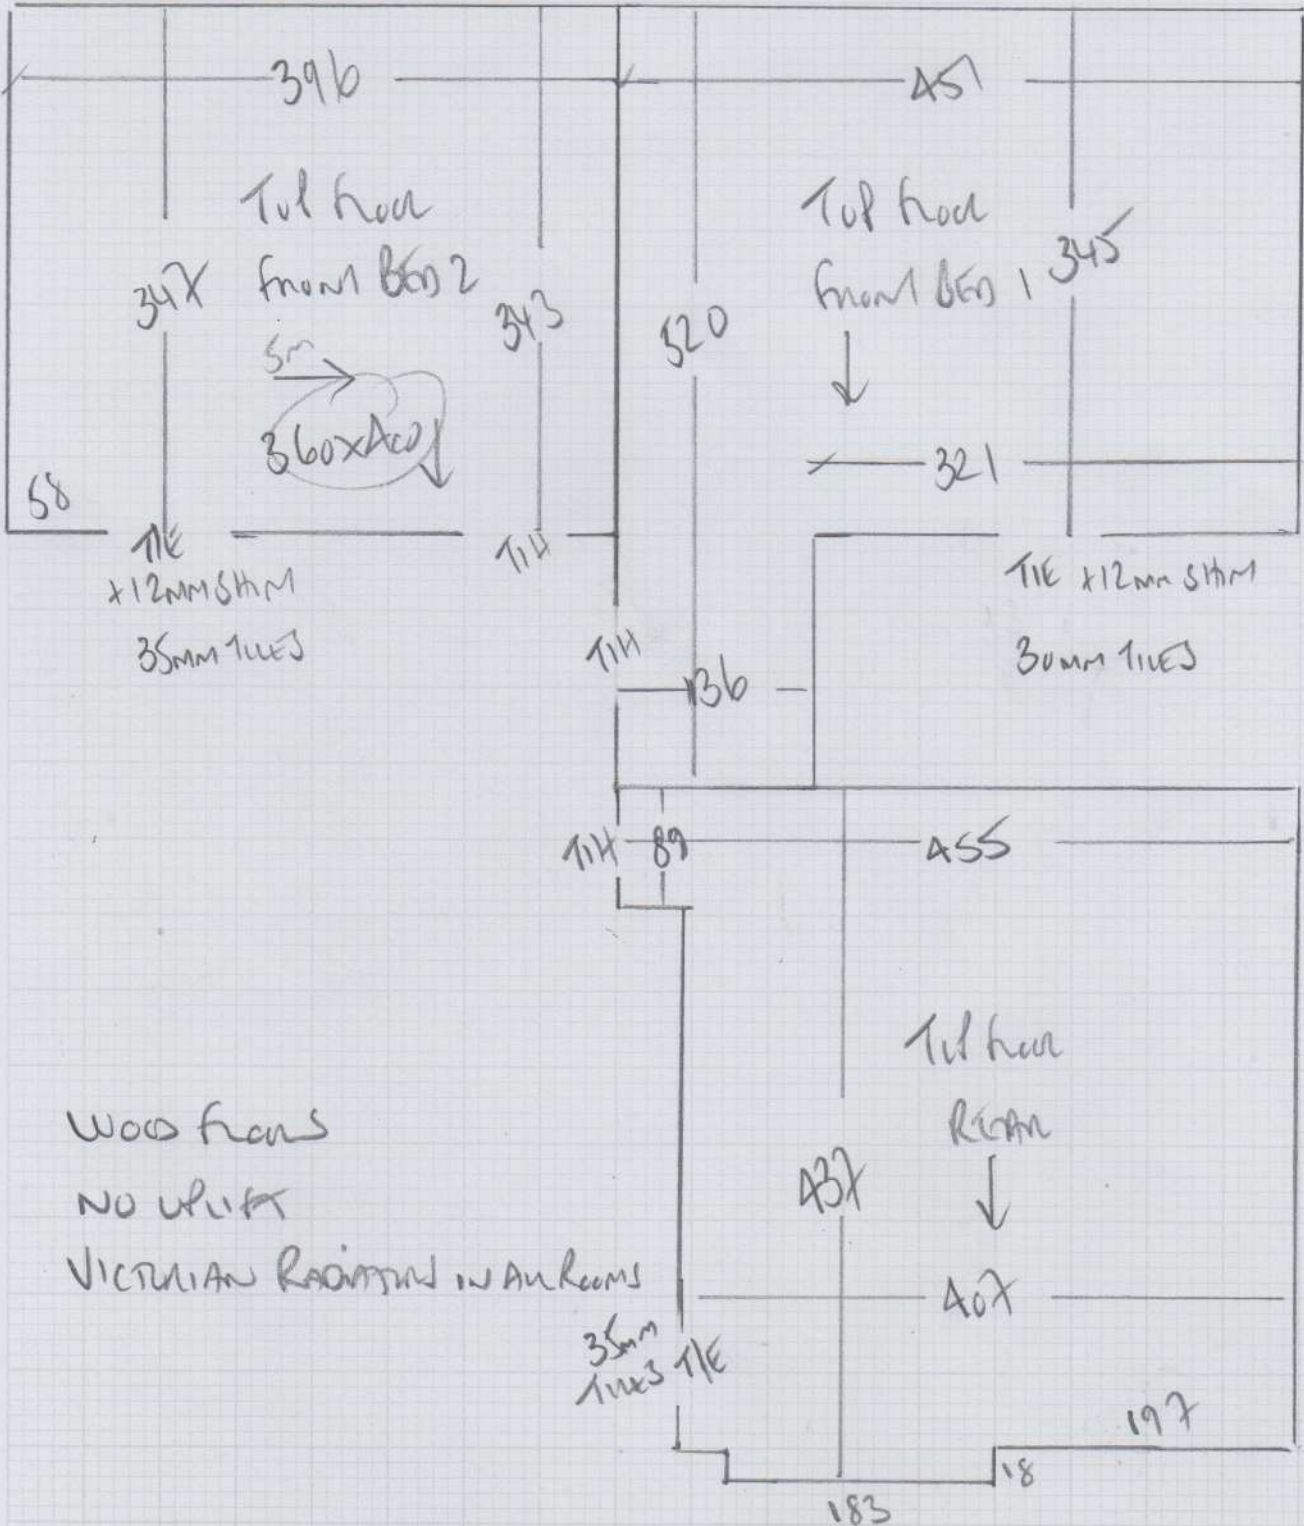 396
451
Top floor
Front BED 2
347
343
5m
360x400
58
T/E
+12mm SHIM
35mm TILES
T/H
520
Top floor
Front BED 1
345
321
T/E +12mm SHIM
30mm TILES
T/H
136
T/H 89
455
Top floor
REAR
437
407
WOOD FLOORS
NO UPLIFT
VICTORIAN RADIATORS IN ALL ROOMS
35mm
TILES T/E
197
18
183